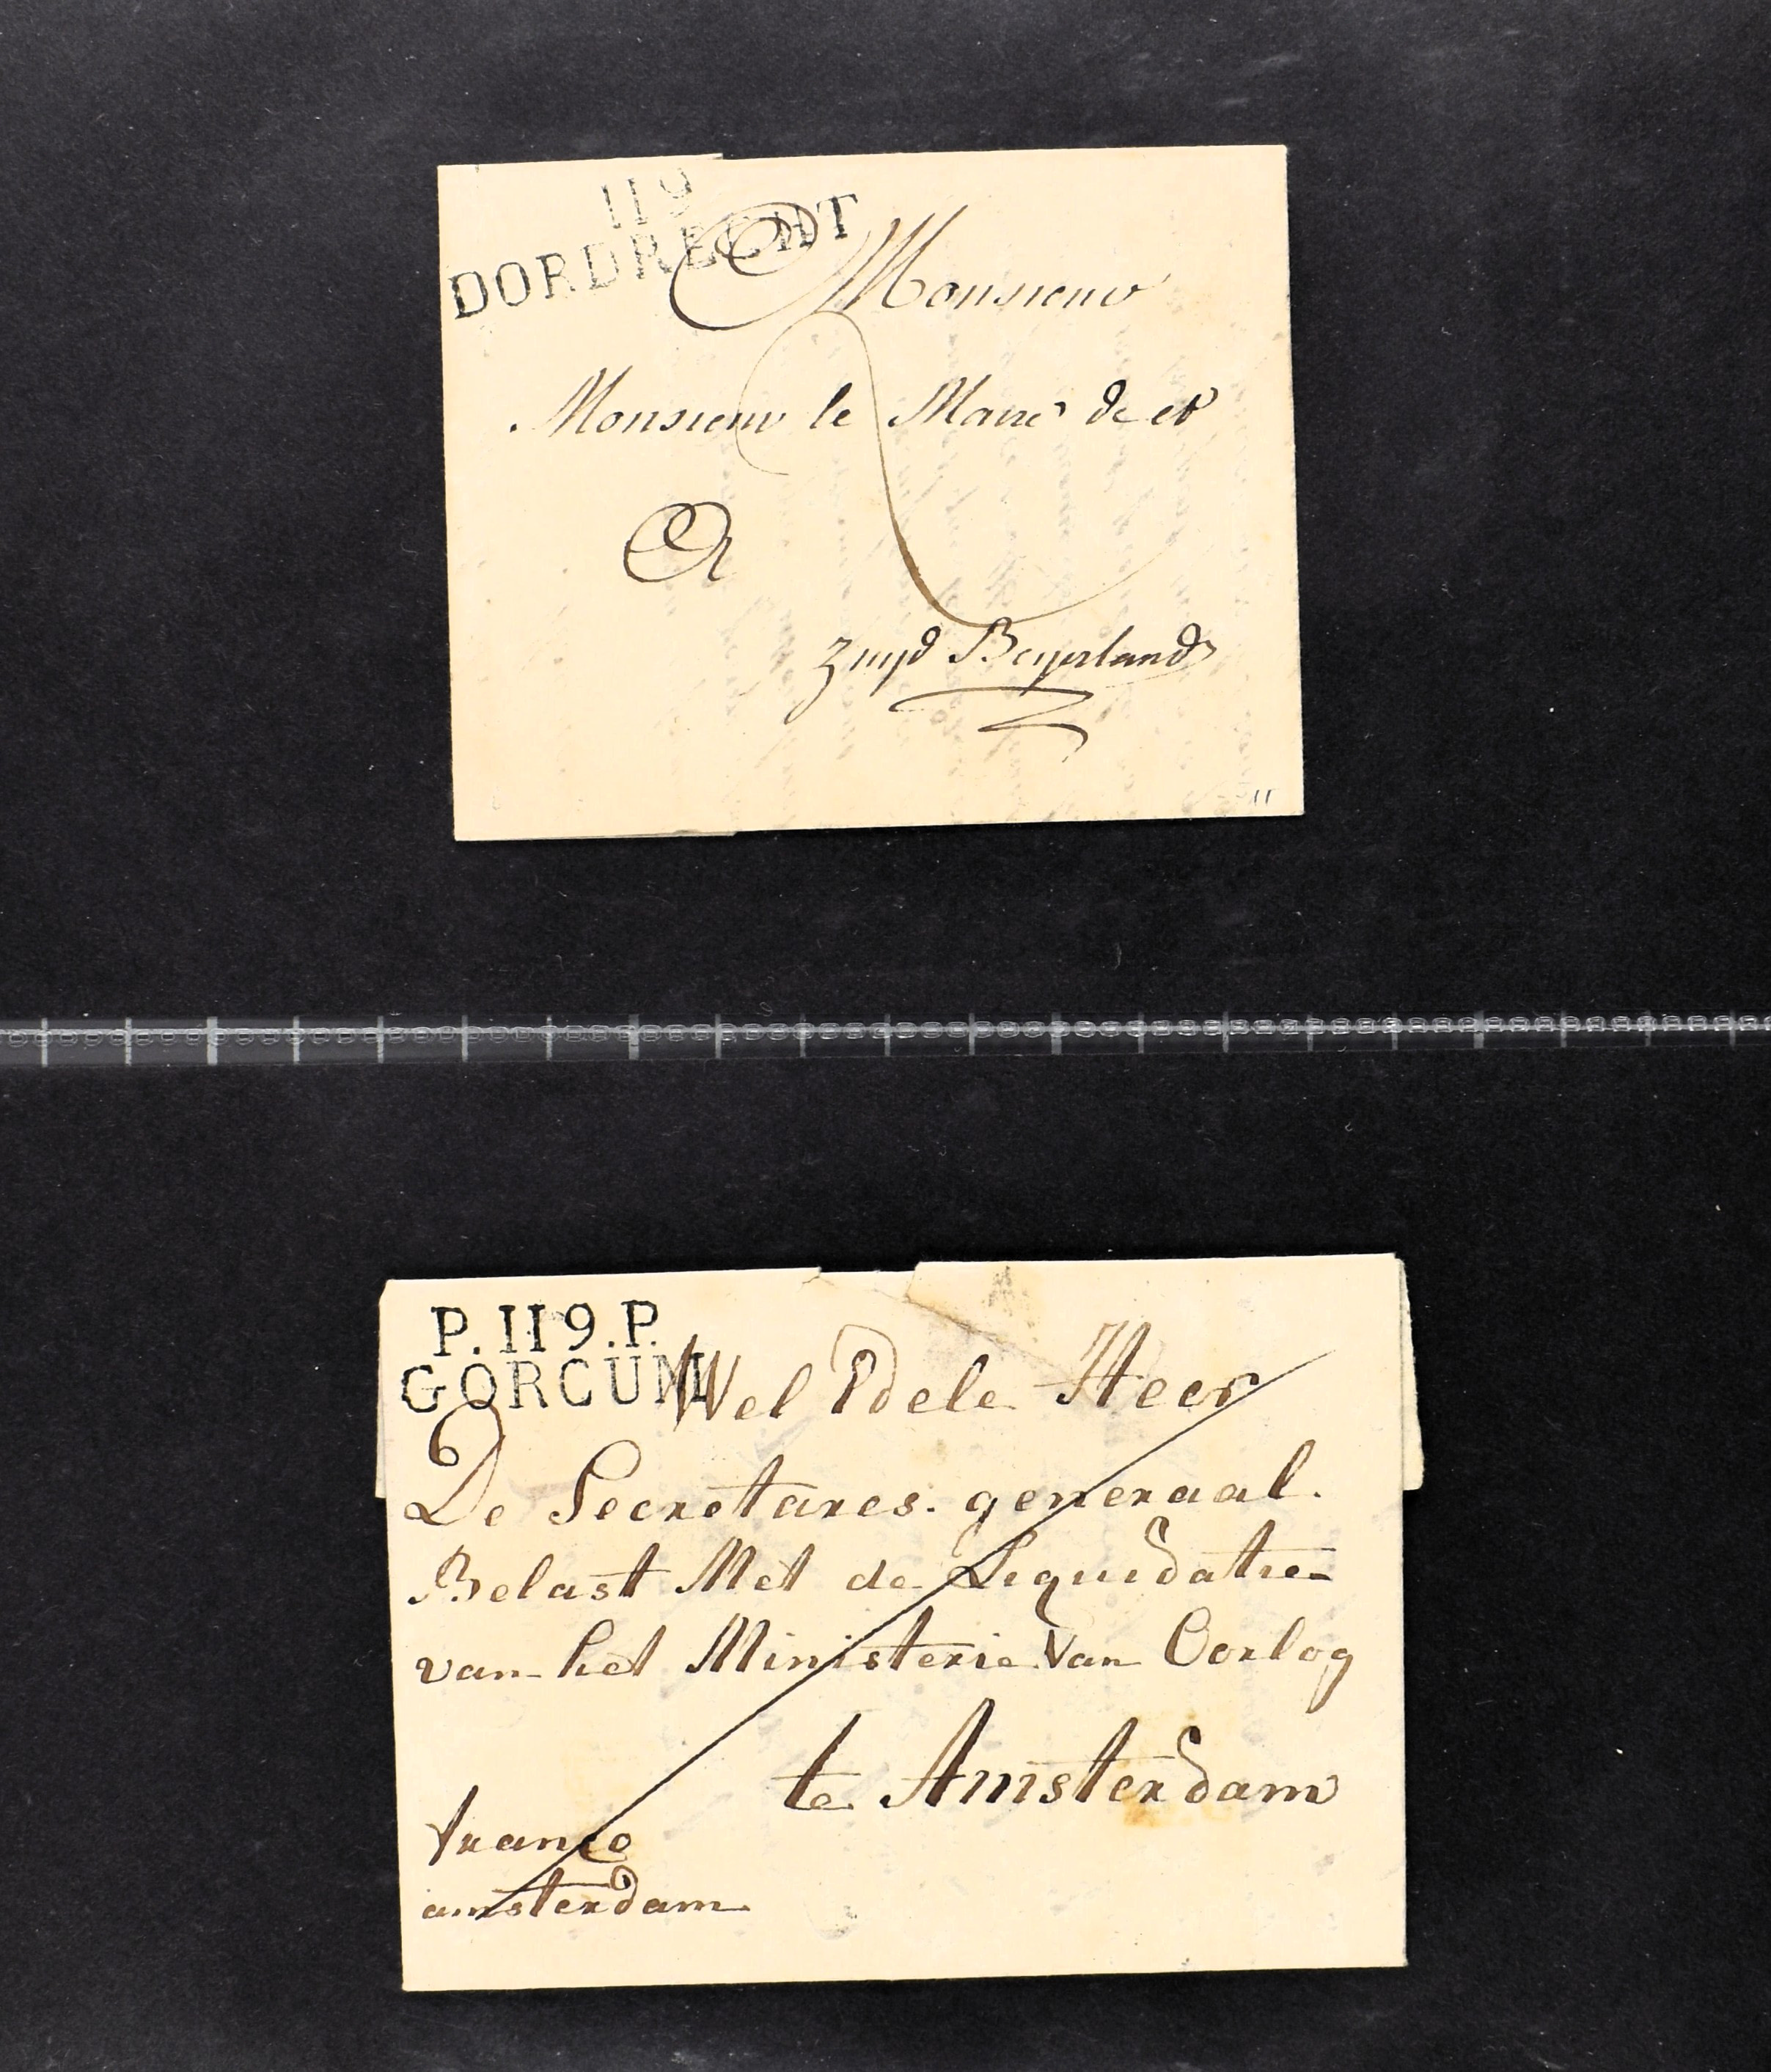 119
DORDRECHT
Monsieur
Monsieur le Maire de et
A
2
Zuyd Beyerland
11
P.119.P.
GORCUM
Wel Edele Heer
De Secretares. generaal.
Belast Met de Liquidatie
van het Ministerie Van Oorlog
te Amsterdam
franco
amsterdam